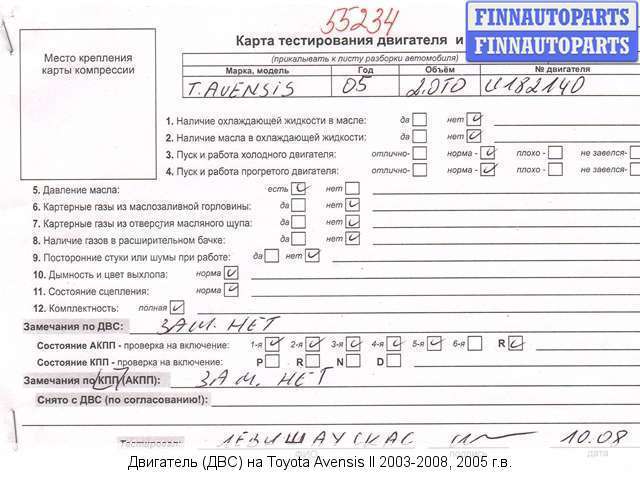 55234
FINNAUTOPARTS
FINNAUTOPARTS
Карта тестирования двигателя и
(прикалывать к листу разборки автомобиля)
Место крепления
карты компрессии
Марка, модель Год Объём № двигателя
T. AVENSIS 05 2.0TD U182140
1. Наличие охлаждающей жидкости в масле: да нет
2. Наличие масла в охлаждающей жидкости: да нет
3. Пуск и работа холодного двигателя: отлично- норма - плохо - не завелся-
4. Пуск и работа прогретого двигателя: отлично- норма - плохо - не завелся-
5. Давление масла: есть нет
6. Картерные газы из маслозаливной горловины: да нет
7. Картерные газы из отверстия масляного щупа: да нет
8. Наличие газов в расширительном бачке: да нет
9. Посторонние стуки или шумы при работе: да нет
10. Дымность и цвет выхлопа: норма
11. Состояние сцепления: норма
12. Комплектность: полная
Замечания по ДВС: ЗАМ. НЕТ
Состояние АКПП - проверка на включение: 1-я 2-я 3-я 4-я 5-я 6-я R
Состояние КПП - проверка на включение: P R N D
Замечания по КПП (АКПП): ЗАМ. НЕТ
Снято с ДВС (по согласованию!):
Тестировал: ЛЕВИШАУСКАС 10.08
ФИО подпись дата
Двигатель (ДВС) на Toyota Avensis II 2003-2008, 2005 г.в.